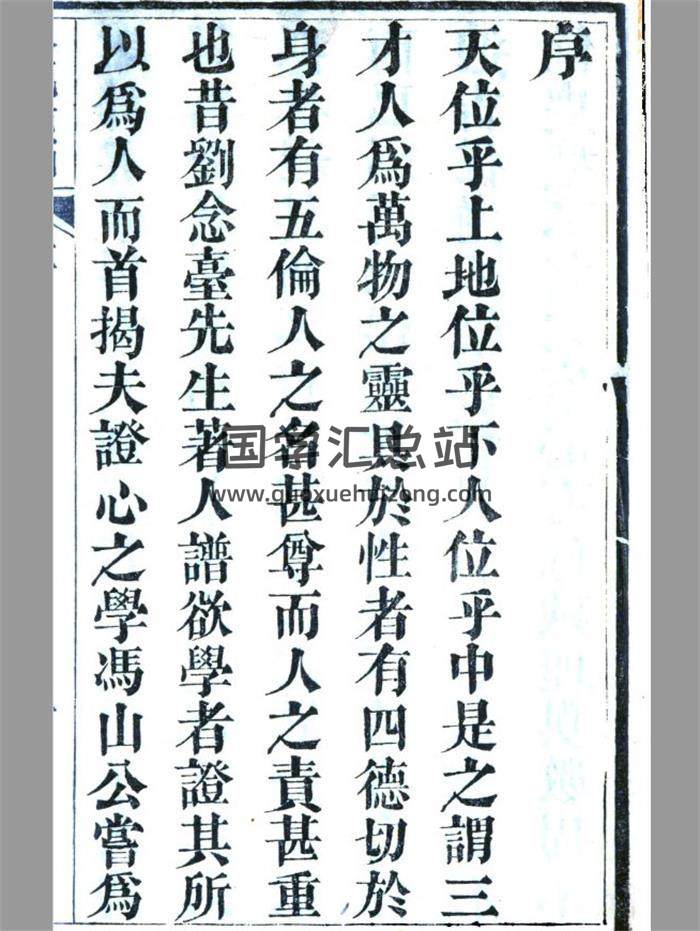 序
天位乎上地位乎下人位乎中是之謂三
才人爲萬物之靈具於性者有四德切於
身者有五倫人之名甚尊而人之責甚重
也昔劉念臺先生著人譜欲學者證其所
以爲人而首揭夫證心之學馮山公嘗爲
国学汇总站
www.guoxuehuizong.com